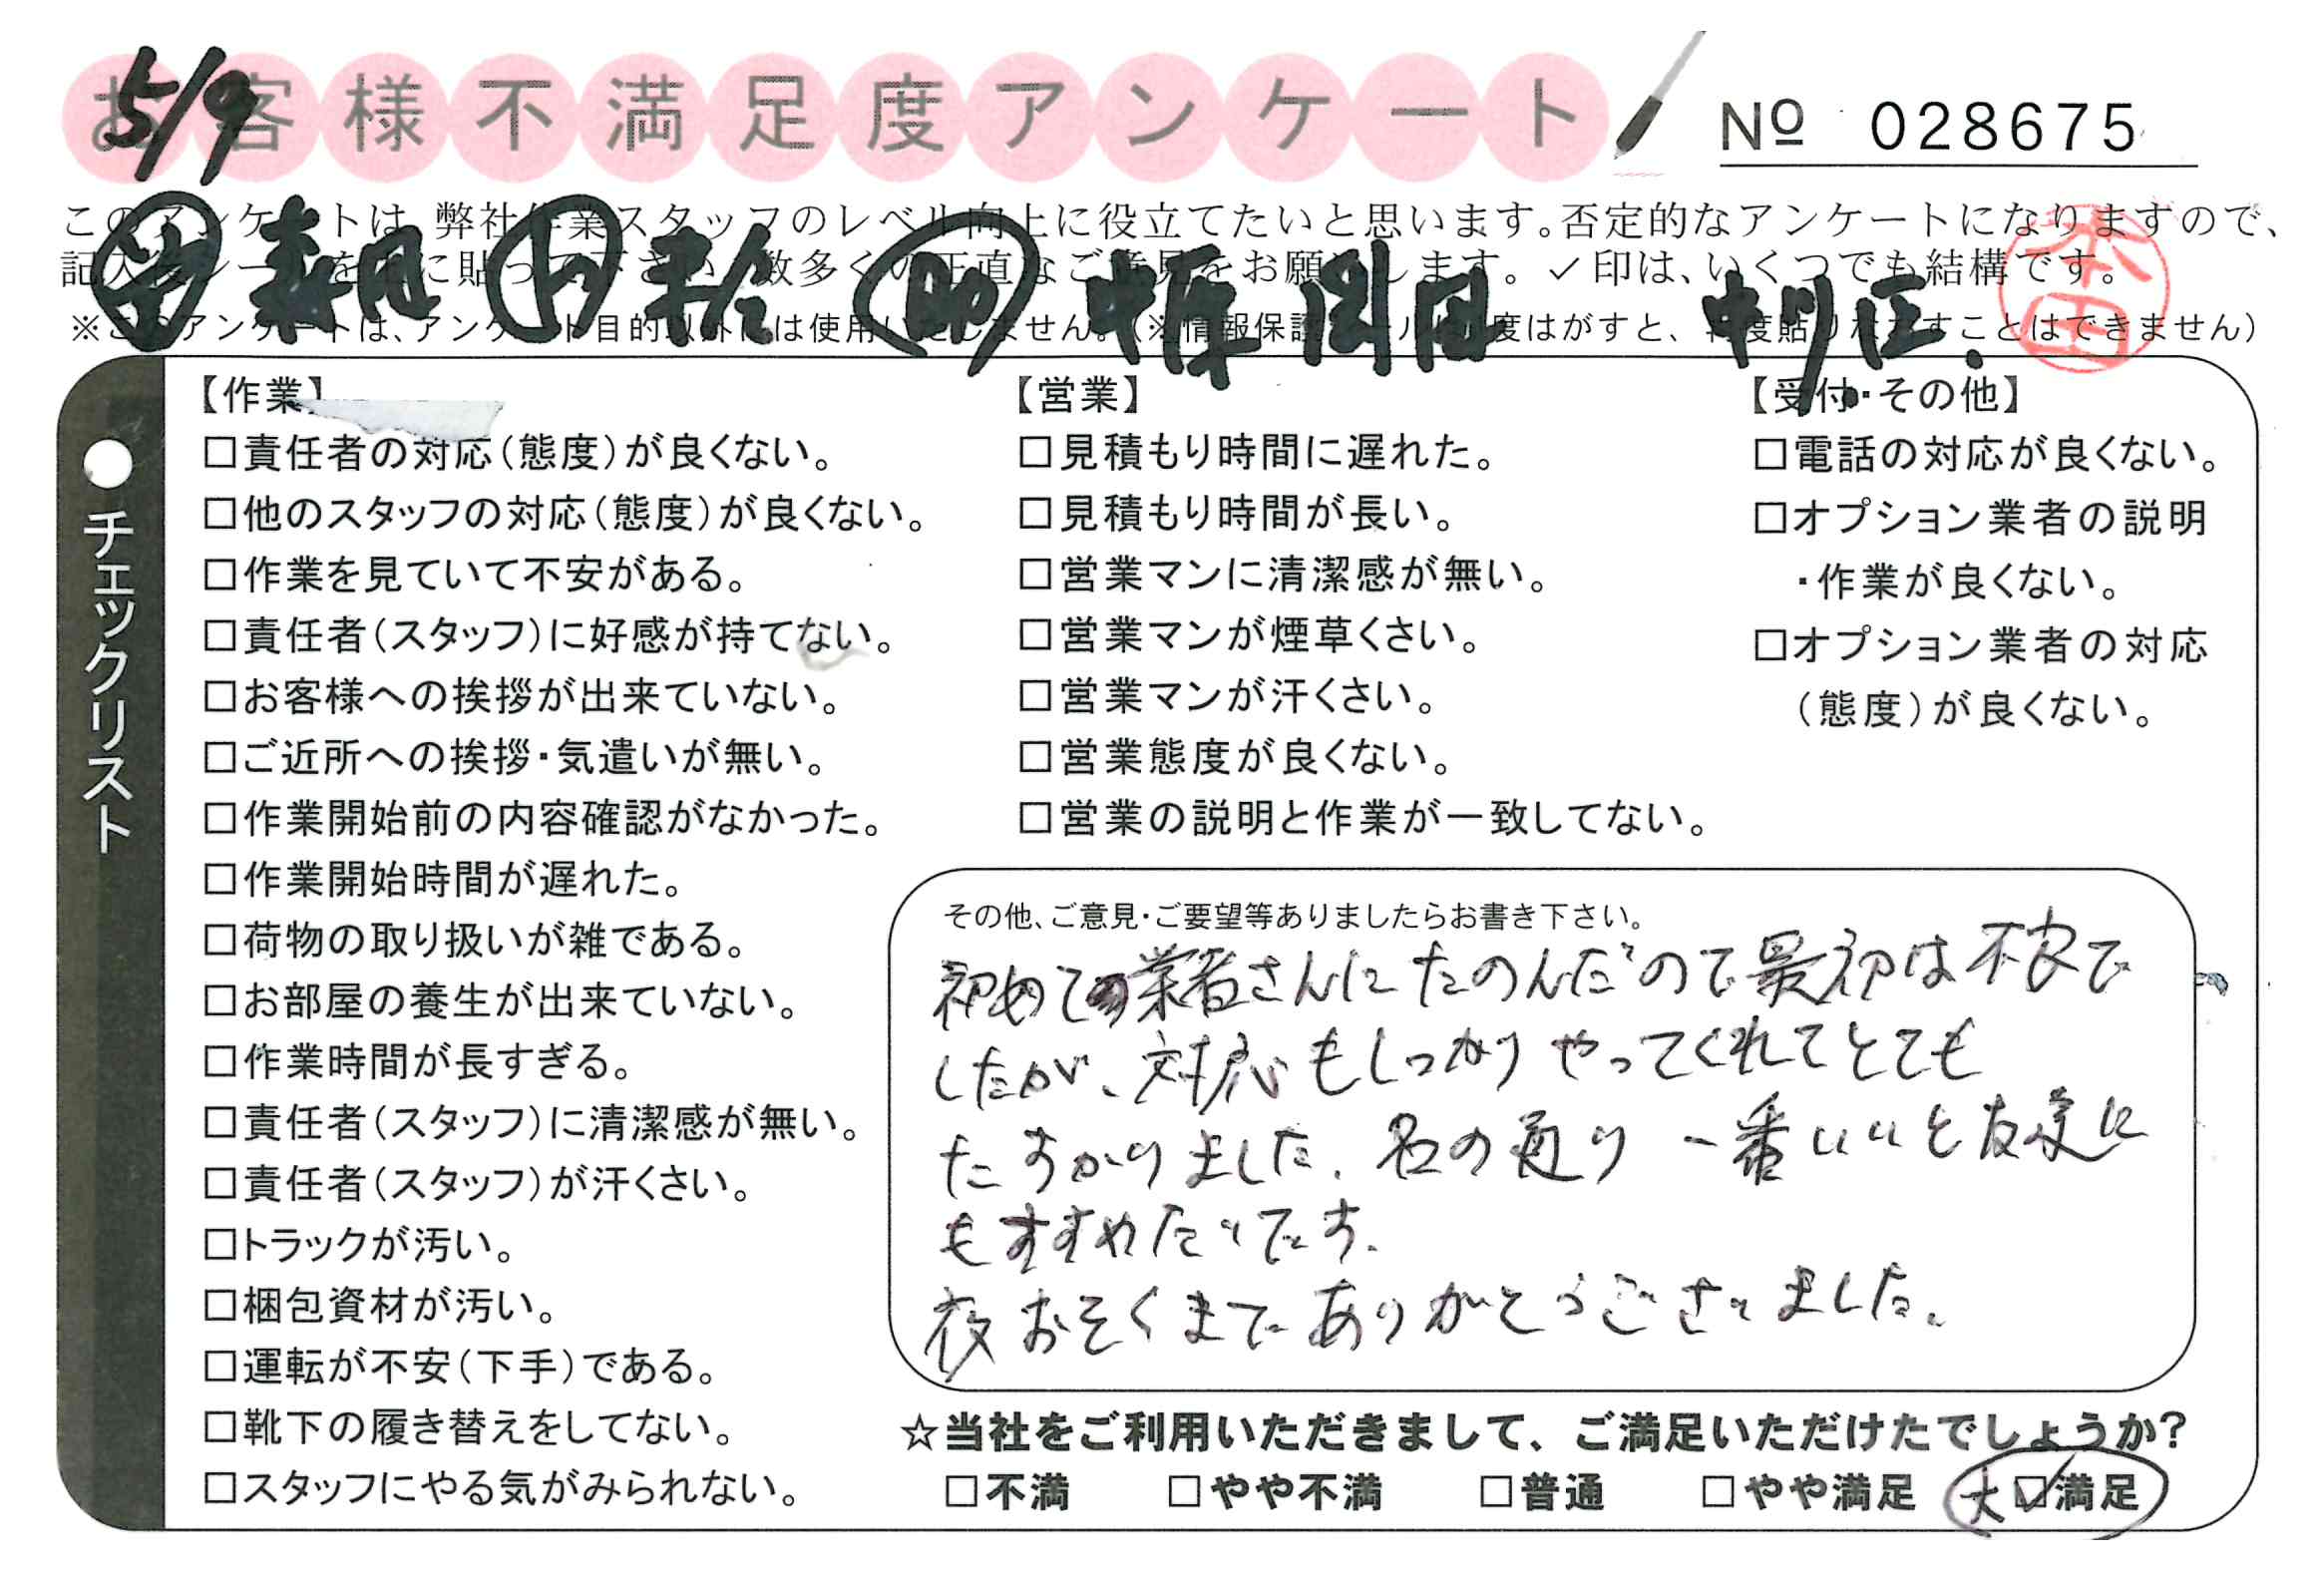 お客様不満足度アンケート
5/9
No 028675
このアンケートは、弊社作業スタッフのレベル向上に役立てたいと思います。否定的なアンケートになりますので、
記入後シールを上に貼って下さい。数多くの正直なご意見をお願いします。✓印は、いくつでも結構です。
※このアンケートは、アンケート目的以外には使用いたしません。(※情報保護シールは1度はがすと、再度貼りなおすことはできません)
本田
●チェックリスト
【作業】
□責任者の対応(態度)が良くない。
□他のスタッフの対応(態度)が良くない。
□作業を見ていて不安がある。
□責任者(スタッフ)に好感が持てない。
□お客様への挨拶が出来ていない。
□ご近所への挨拶・気遣いが無い。
□作業開始前の内容確認がなかった。
□作業開始時間が遅れた。
□荷物の取り扱いが雑である。
□お部屋の養生が出来ていない。
□作業時間が長すぎる。
□責任者(スタッフ)に清潔感が無い。
□責任者(スタッフ)が汗くさい。
□トラックが汚い。
□梱包資材が汚い。
□運転が不安(下手)である。
□靴下の履き替えをしてない。
□スタッフにやる気がみられない。
【営業】
□見積もり時間に遅れた。
□見積もり時間が長い。
□営業マンに清潔感が無い。
□営業マンが煙草くさい。
□営業マンが汗くさい。
□営業態度が良くない。
□営業の説明と作業が一致してない。
【受付・その他】
□電話の対応が良くない。
□オプション業者の説明
・作業が良くない。
□オプション業者の対応
(態度)が良くない。
その他、ご意見・ご要望等ありましたらお書き下さい。
初めての業者さんにたのんだので最初は不安で
したが、対応もしっかりやってくれてとても
たすかりました。名の通り一番いいと友達に
もすすめたいです。
夜おそくまでありがとうございました。
☆当社をご利用いただきまして、ご満足いただけたでしょうか?
□不満 □やや不満 □普通 □やや満足 大☑満足